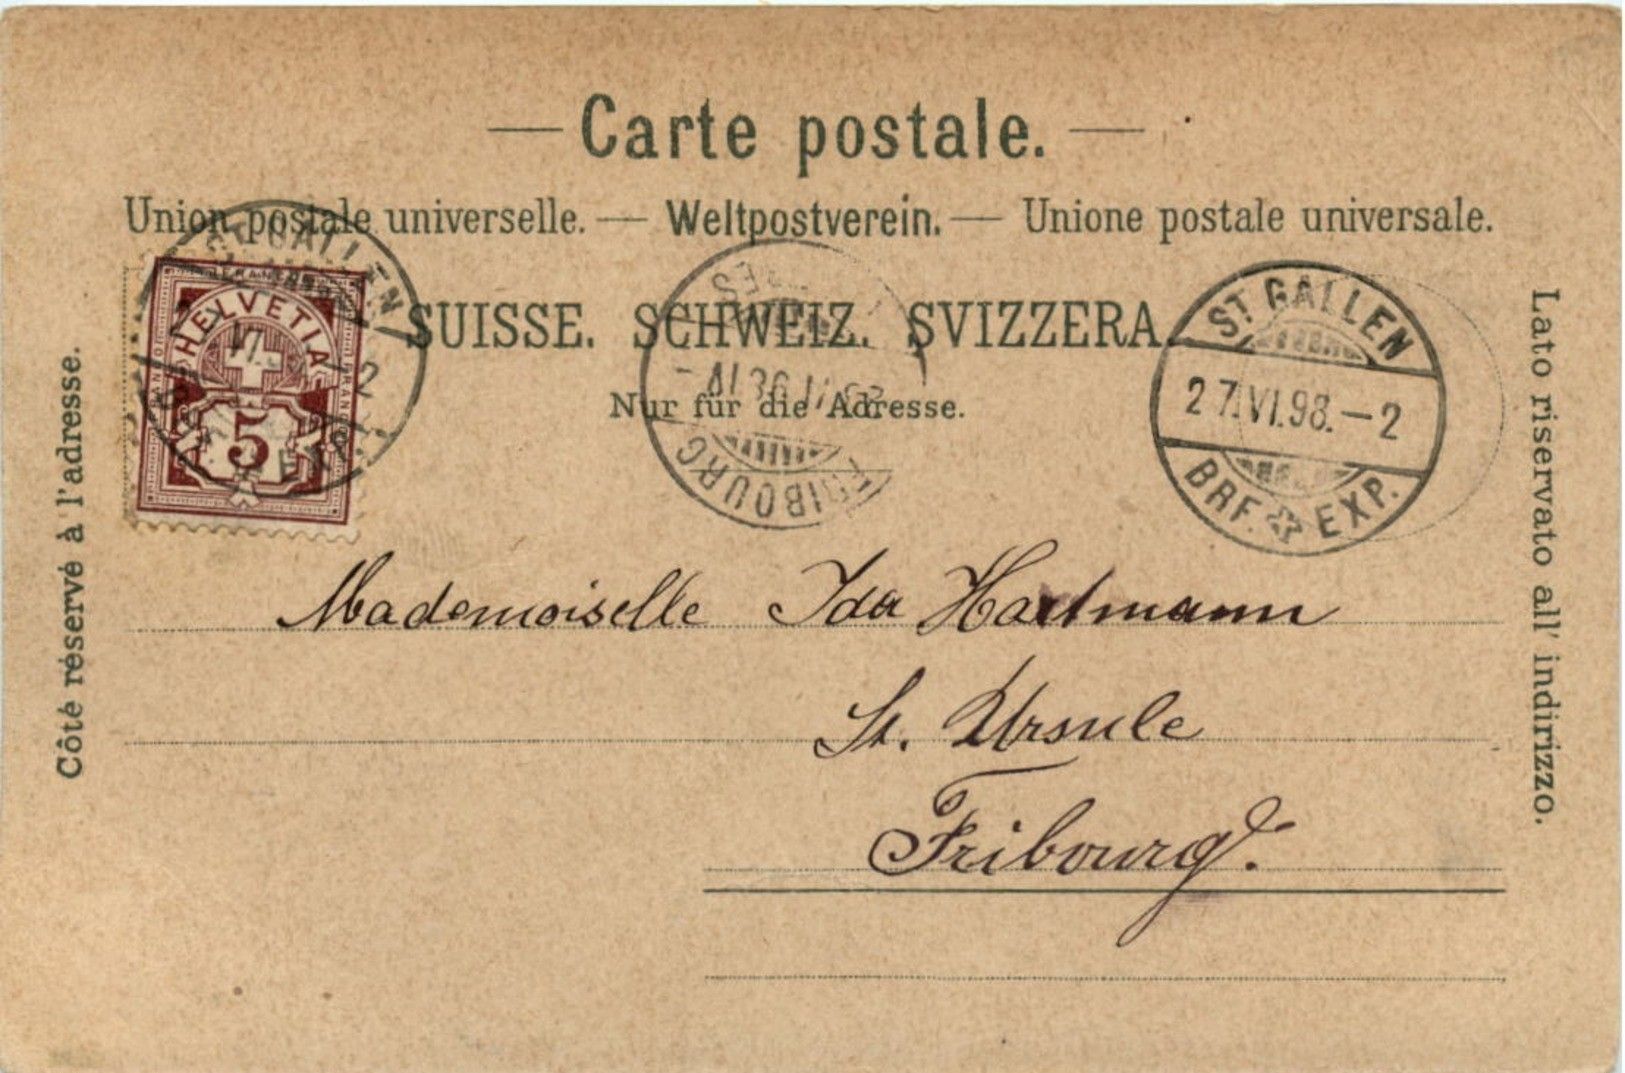 Carte postale.
Union postale universelle. — Weltpostverein. — Unione postale universale.
SUISSE. SCHWEIZ. SVIZZERA.
Nur für die Adresse.
Côté réservé à l'adresse.
Lato riservato all' indirizzo.
HELVETIA
FRANCO
5
ST. GALLEN
ST. GALLEN
27.VI.98.-2
BRF. EXP.
FRIBOURG
Mademoiselle Ida Hartmann
St. Ursule
Fribourg.